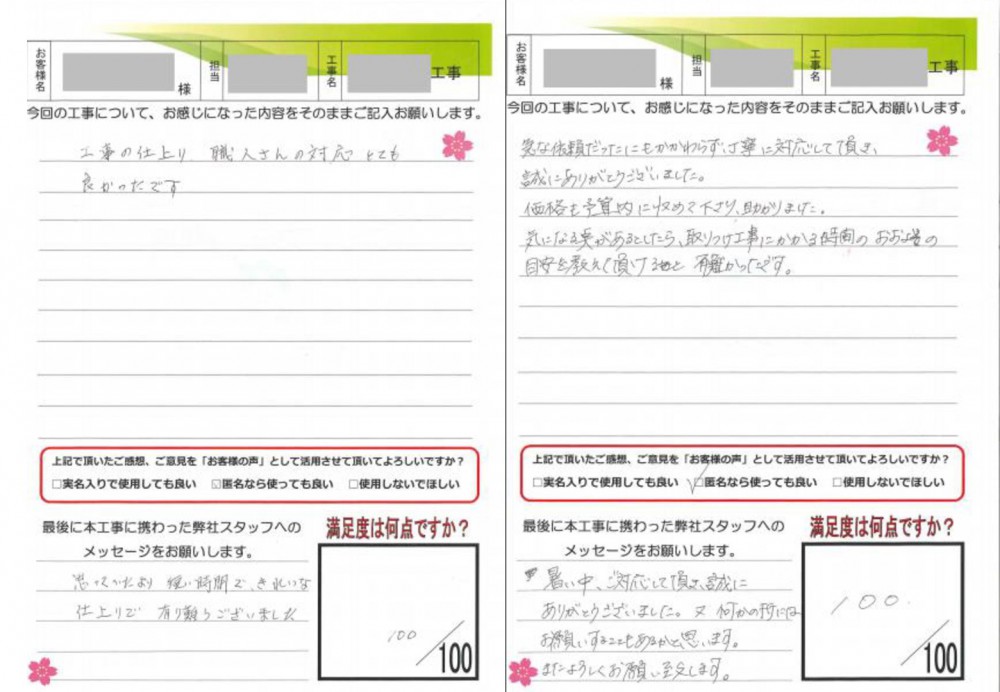 お客様名
様
担当
工事名
工事
今回の工事について、お感じになった内容をそのままご記入お願いします。
工事の仕上り 職人さんの対応 とても
良かったです
上記で頂いたご感想、ご意見を「お客様の声」として活用させて頂いてよろしいですか？
□実名入りで使用しても良い ☑匿名なら使っても良い □使用しないでほしい
最後に本工事に携わった弊社スタッフへの
メッセージをお願いします。
思っていたより 短い時間で、きれいな
仕上りで 有り難うございました
満足度は何点ですか？
100/100
お客様名
様
担当
工事名
工事
今回の工事について、お感じになった内容をそのままご記入お願いします。
急な依頼だったにもかかわらず、丁寧に対応して頂き、
誠にありがとうございました。
価格も予算内に収めて下さり、助かりました。
気になる点があるとしたら、取りつけ工事にかかる時間の おおよその
目安を教えて頂けると 有難かったです。
上記で頂いたご感想、ご意見を「お客様の声」として活用させて頂いてよろしいですか？
□実名入りで使用しても良い ☑匿名なら使っても良い □使用しないでほしい
最後に本工事に携わった弊社スタッフへの
メッセージをお願いします。
暑い中、ご対応して頂き、誠に
ありがとうございました。又 何かの折には
お願いすることもあるかと思います。
またよろしくお願い致します。
満足度は何点ですか？
100./100